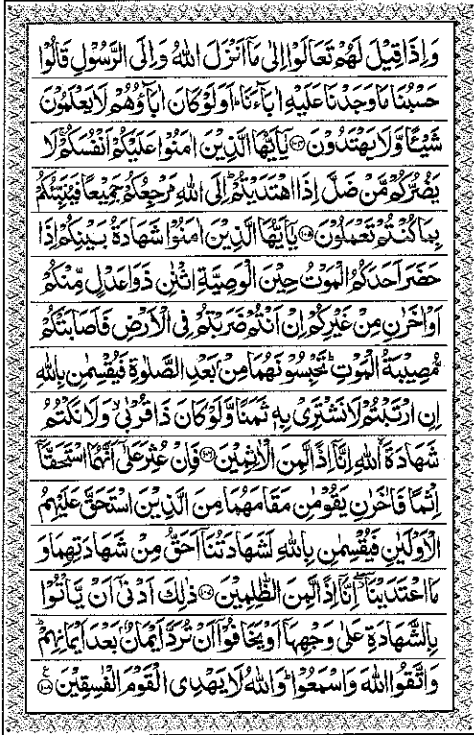 وَ اِذَا قِيْلَ لَهُمْ تَعَالَوْا اِلٰى مَاۤ اَنْزَلَ اللّٰهُ وَ اِلَى الرَّسُوْلِ قَالُوْا
حَسْبُنَا مَا وَجَدْنَا عَلَيْهِ اٰبَآءَنَا ؕ اَوَ لَوْ كَانَ اٰبَآؤُهُمْ لَا يَعْلَمُوْنَ
شَيْـًٔا وَّ لَا يَهْتَدُوْنَ ۝۱۰۴ يٰۤاَيُّهَا الَّذِيْنَ اٰمَنُوْا عَلَيْكُمْ اَنْفُسَكُمْ ۚ لَا
يَضُرُّكُمْ مَّنْ ضَلَّ اِذَا اهْتَدَيْتُمْ ؕ اِلَى اللّٰهِ مَرْجِعُكُمْ جَمِيْعًا فَيُنَبِّئُكُمْ
بِمَا كُنْتُمْ تَعْمَلُوْنَ ۝۱۰۵ يٰۤاَيُّهَا الَّذِيْنَ اٰمَنُوْا شَهَادَةُ بَيْنِكُمْ اِذَا
حَضَرَ اَحَدَكُمُ الْمَوْتُ حِيْنَ الْوَصِيَّةِ اثْنٰنِ ذَوَا عَدْلٍ مِّنْكُمْ
اَوْ اٰخَرٰنِ مِنْ غَيْرِكُمْ اِنْ اَنْتُمْ ضَرَبْتُمْ فِى الْاَرْضِ فَاَصَابَتْكُمْ
مُّصِيْبَةُ الْمَوْتِ ؕ تَحْبِسُوْنَهُمَا مِنْۢ بَعْدِ الصَّلٰوةِ فَيُقْسِمٰنِ بِاللّٰهِ
اِنِ ارْتَبْتُمْ لَا نَشْتَرِىْ بِهٖ ثَمَنًا وَّ لَوْ كَانَ ذَا قُرْبٰى ۙ وَ لَا نَكْتُمُ
شَهَادَةَ ۙ اللّٰهِ اِنَّاۤ اِذًا لَّمِنَ الْاٰثِمِيْنَ ۝۱۰۶ فَاِنْ عُثِرَ عَلٰۤى اَنَّهُمَا اسْتَحَقَّاۤ
اِثْمًا فَاٰخَرٰنِ يَقُوْمٰنِ مَقَامَهُمَا مِنَ الَّذِيْنَ اسْتَحَقَّ عَلَيْهِمُ
الْاَوْلَيٰنِ فَيُقْسِمٰنِ بِاللّٰهِ لَشَهَادَتُنَاۤ اَحَقُّ مِنْ شَهَادَتِهِمَا وَ
مَا اعْتَدَيْنَاۤ ۖ اِنَّاۤ اِذًا لَّمِنَ الظّٰلِمِيْنَ ۝۱۰۷ ذٰلِكَ اَدْنٰۤى اَنْ يَّاْتُوْا
بِالشَّهَادَةِ عَلٰى وَجْهِهَاۤ اَوْ يَخَافُوْۤا اَنْ تُرَدَّ اَيْمَانٌۢ بَعْدَ اَيْمَانِهِمْ ؕ
وَ اتَّقُوا اللّٰهَ وَ اسْمَعُوْا ؕ وَ اللّٰهُ لَا يَهْدِى الْقَوْمَ الْفٰسِقِيْنَ ۝۱۰۸ ع